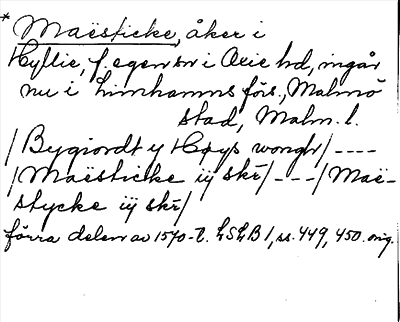 * Maësticke, åker i
Hyllie, f. egen sn i Oxie hd, ingår
nu i Limhamns förs., Malmö
stad, Malm. l.
/Bygiordt y Høys wongh/----
/Maësticke iÿ skr/---/Maë-
stycke iÿ skr/
förra delen av 1570-t. LSLB 1, ss. 449, 450. orig.